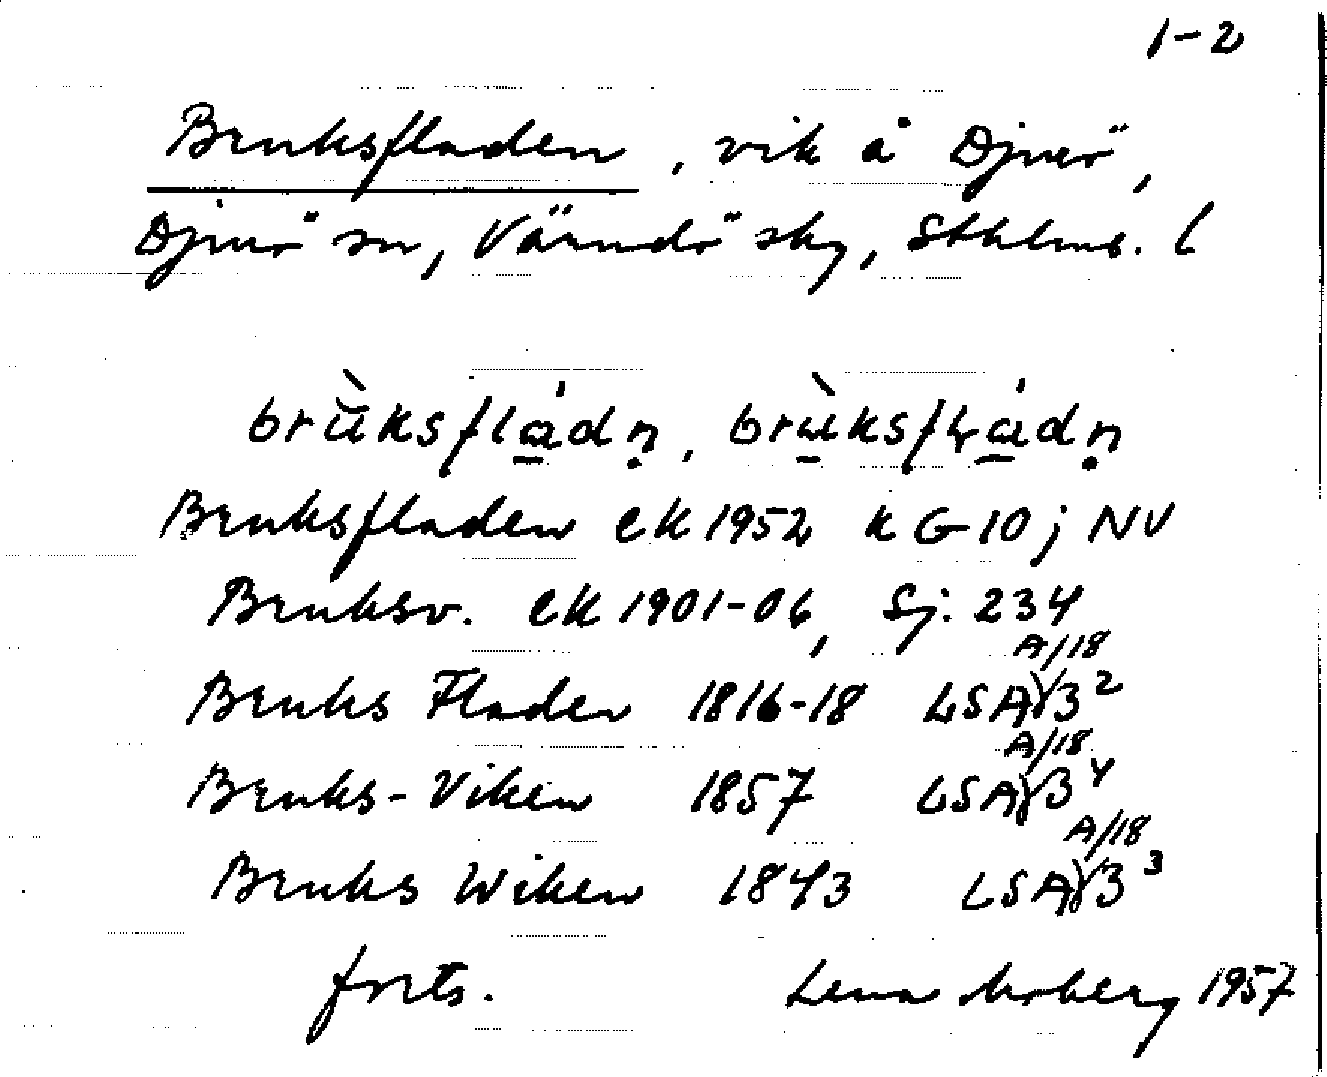 1-2
Bruksfladen, vik å Djurö,
Djurö sn, Värmdö sky, Sthlms. l
brùksflád̥n, brùksflád̥n
Bruksfladen EK 1952 k G 10 j NV
Bruksv. EK 1901-06, Sj. 234
Bruks Fladen 1816-18 LSA A/18 γ3²
Bruks-Viken 1857 LSA A/18 γ3⁴
Bruks Wiken 1843 LSA A/18 γ3³
forts. Lena Moberg 1957